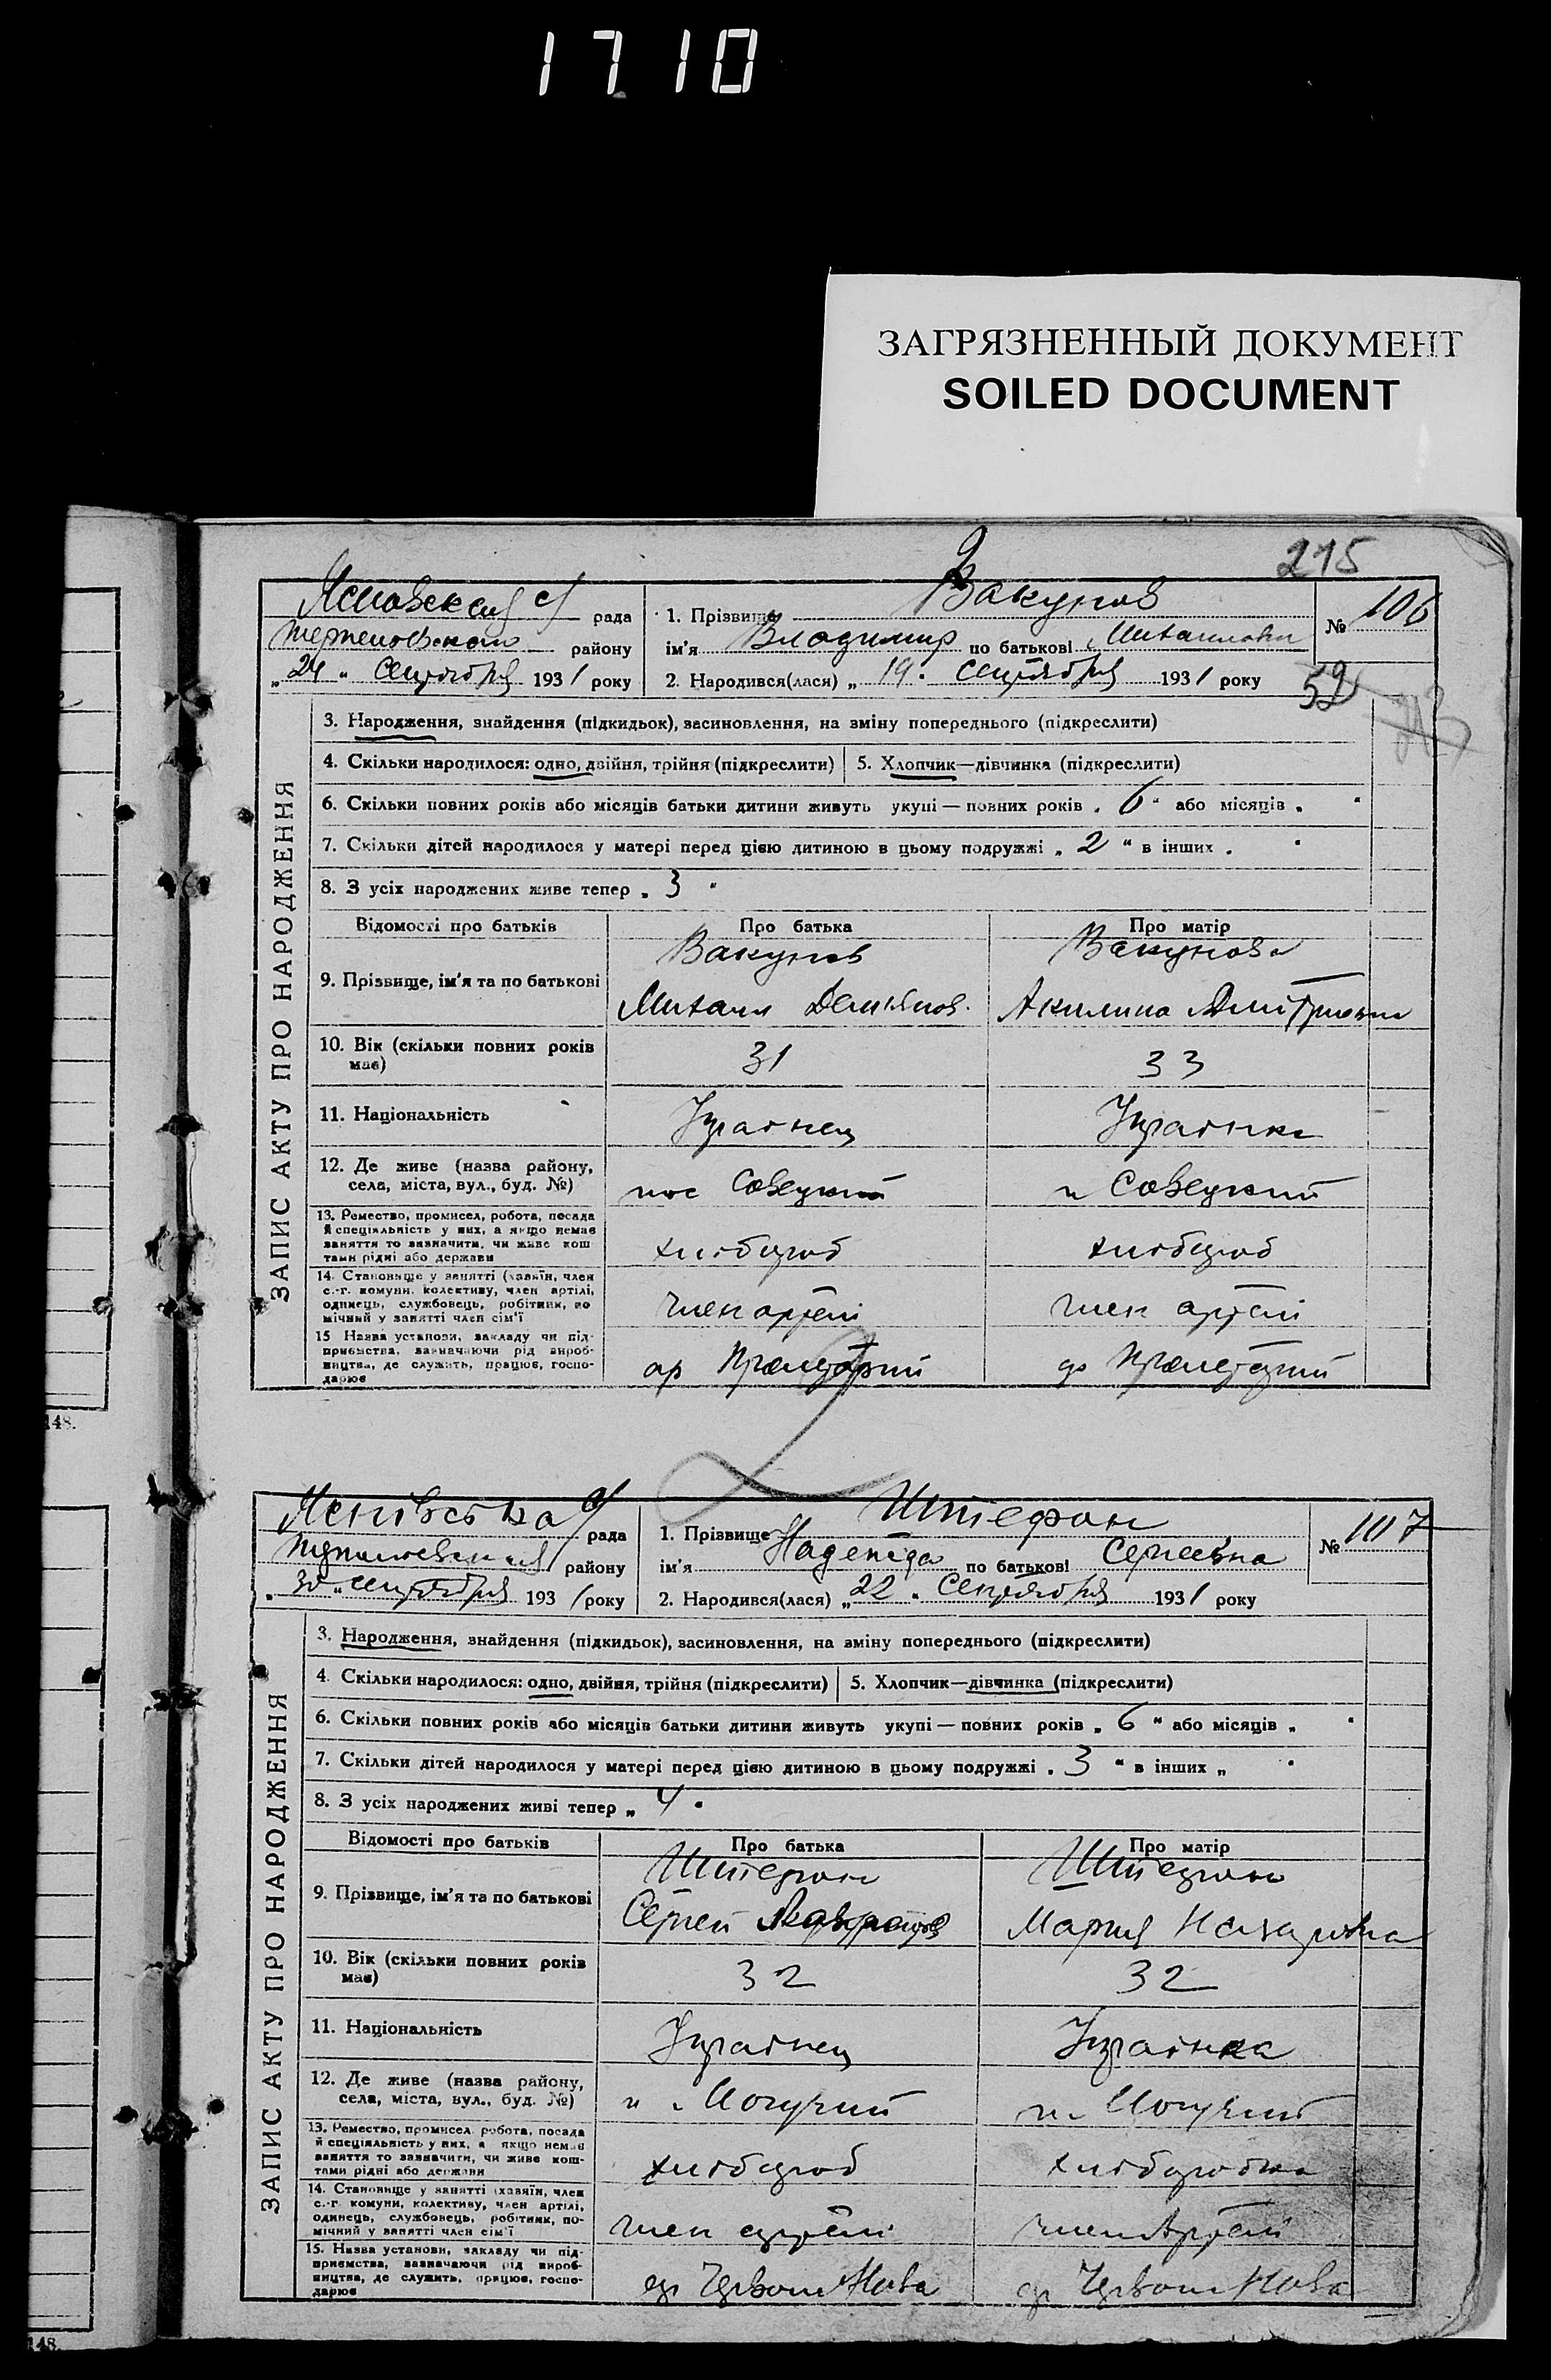 17 10
ЗАГРЯЗНЕННЫЙ ДОКУМЕНТ
SOILED DOCUMENT
215
с/ рада
району
„24“ Сентября 1931 року
1. Прізвище Вакунов
ім'я Владимир по батькові
2. Народився(лася) „19“ Сентября 1931 року
№ 106
52
ЗАПИС АКТУ ПРО НАРОДЖЕННЯ
3. Народження, знайдення (підкидьок), засиновлення, на зміну попереднього (підкреслити)
4. Скільки народилося: одно, двійня, трійня (підкреслити) 5. Хлопчик—дівчинка (підкреслити)
6. Скільки повних років або місяців батьки дитини живуть укупі — повних років „6“ або місяців „ “
7. Скільки дітей народилося у матері перед цією дитиною в цьому подружжі „2“ в інших „ “
8. З усіх народжених живе тепер „3“
Відомості про батьків Про батька Про матір
9. Прізвище, ім'я та по батькові
Вакунов Вакунова
Михаил Демьянов. Акилина Дмитриевна
10. Вік (скільки повних років має) 31 33
11. Національність Украінец Украінка
12. Де живе (назва району, села, міста, вул., буд. №) пос Совецкий п Совецкий
13. Ремество, промисел, робота, посада й спеціяльність у них, а якщо немає заняття то зазначити, чи живе коштами рідні або держави хлібороб хлібороб
14. Становище у занятті (хазяїн, член с.-г. комуни, колективу, член артілі, одинець, службовець, робітник, помічний у занятті член сім'ї член артелі член артелі
15 Назва установи, закладу чи підприємства, зазначаючи рід виробництва, де служить, працює, господарює ар
с/ рада
району
„30“ сентября 1931 року
1. Прізвище Штефан
ім'я Надежда по батькові Сергеевна
2. Народився(лася) „22“ Сентября 1931 року
№ 107
ЗАПИС АКТУ ПРО НАРОДЖЕННЯ
3. Народження, знайдення (підкидьок), засиновлення, на зміну попереднього (підкреслити)
4. Скільки народилося: одно, двійня, трійня (підкреслити) 5. Хлопчик—дівчинка (підкреслити)
6. Скільки повних років або місяців батьки дитини живуть укупі — повних років „6“ або місяців „ “
7. Скільки дітей народилося у матері перед цією дитиною в цьому подружжі „3“ в інших „ “
8. З усіх народжених живі тепер „4“
Відомості про батьків Про батька Про матір
9. Прізвище, ім'я та по батькові
Штефан Штефан
Сергей Мария Назаровна
10. Вік (скільки повних років має) 32 32
11. Національність Украінец Украінка
12. Де живе (назва району, села, міста, вул., буд. №) п. Могучий п. Могучий
13. Ремество, промисел, робота, посада й спеціяльність у них, а якщо немає заняття то зазначити, чи живе коштами рідні або держави хлібороб хліборобка
14. Становище у занятті (хазяїн, член с.-г. комуни, колективу, член артілі, одинець, службовець, робітник, помічний у занятті член сім'ї член артелі член Артелі
15. Назва установи, закладу чи підприємства, зазначаючи рід виробництва, де служить, працює, господарює Червона Нива Червона Нива
148.
148.